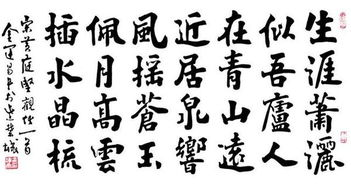 生涯蕭灑
似吾廬人
在青山遠
近居泉響
風搖蒼玉
佩月高雲
插水晶梳
宋黃庭堅觀化一首
金運昌